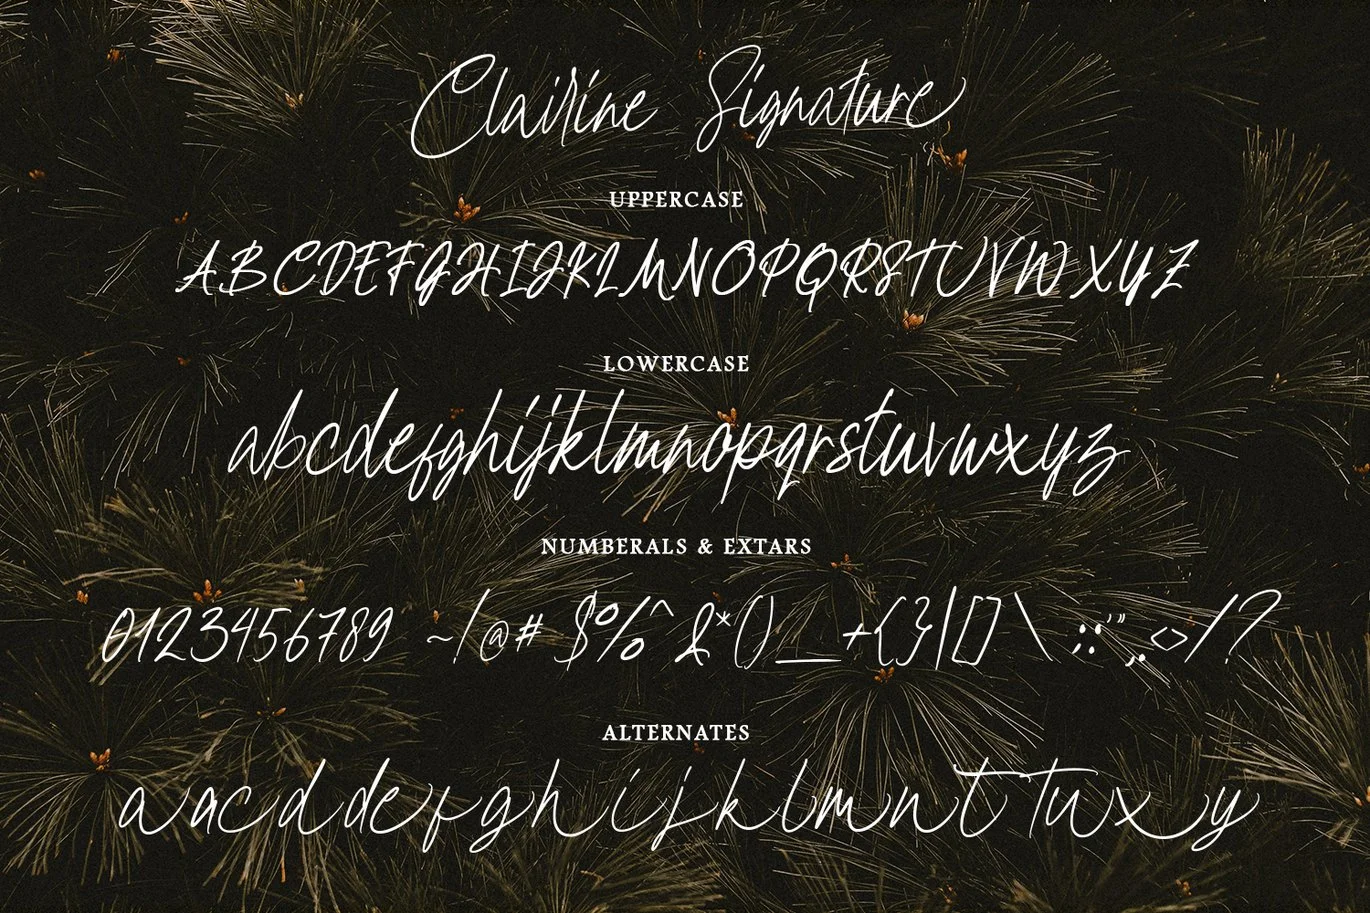 Clairine Signature
UPPERCASE
ABCDEFGHIJKLMNOPQRSTUVWXYZ
LOWERCASE
abcdefghijklmnopqrstuvwxyz
NUMBERALS & EXTARS
0123456789 ~!@#$%^&*()_+{}|[]\:;'",.<>/?
ALTERNATES
a a c d d e f g h i j k l m n t t u x y